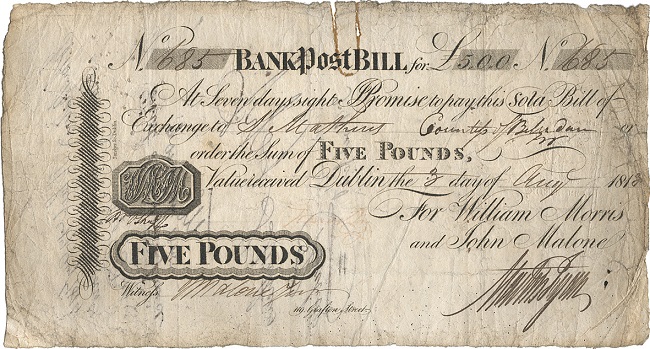 No. 685 BANK Post BILL for £5.0.0 No. 685
At Seven days sight I Promise to pay this Sola Bill of
Exchange to Mathews Countess of Belvedere or
order the Sum of FIVE POUNDS,
Value received Dublin the 3 day of Aug 181
For William Morris
and John Malone
FIVE POUNDS
Witness Malone
Grafton Street